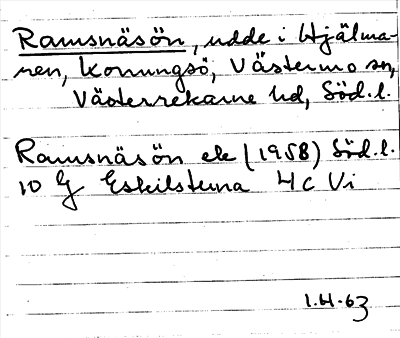 Ramsnäsön, udde i Hjälma-
ren, Konungsö, Västermo sn,
Västerrekarne hd, Söd.l.
Ramsnäsön ek (1958) Söd.l.
10 G Eskilstuna 4c Vi
1.4.63